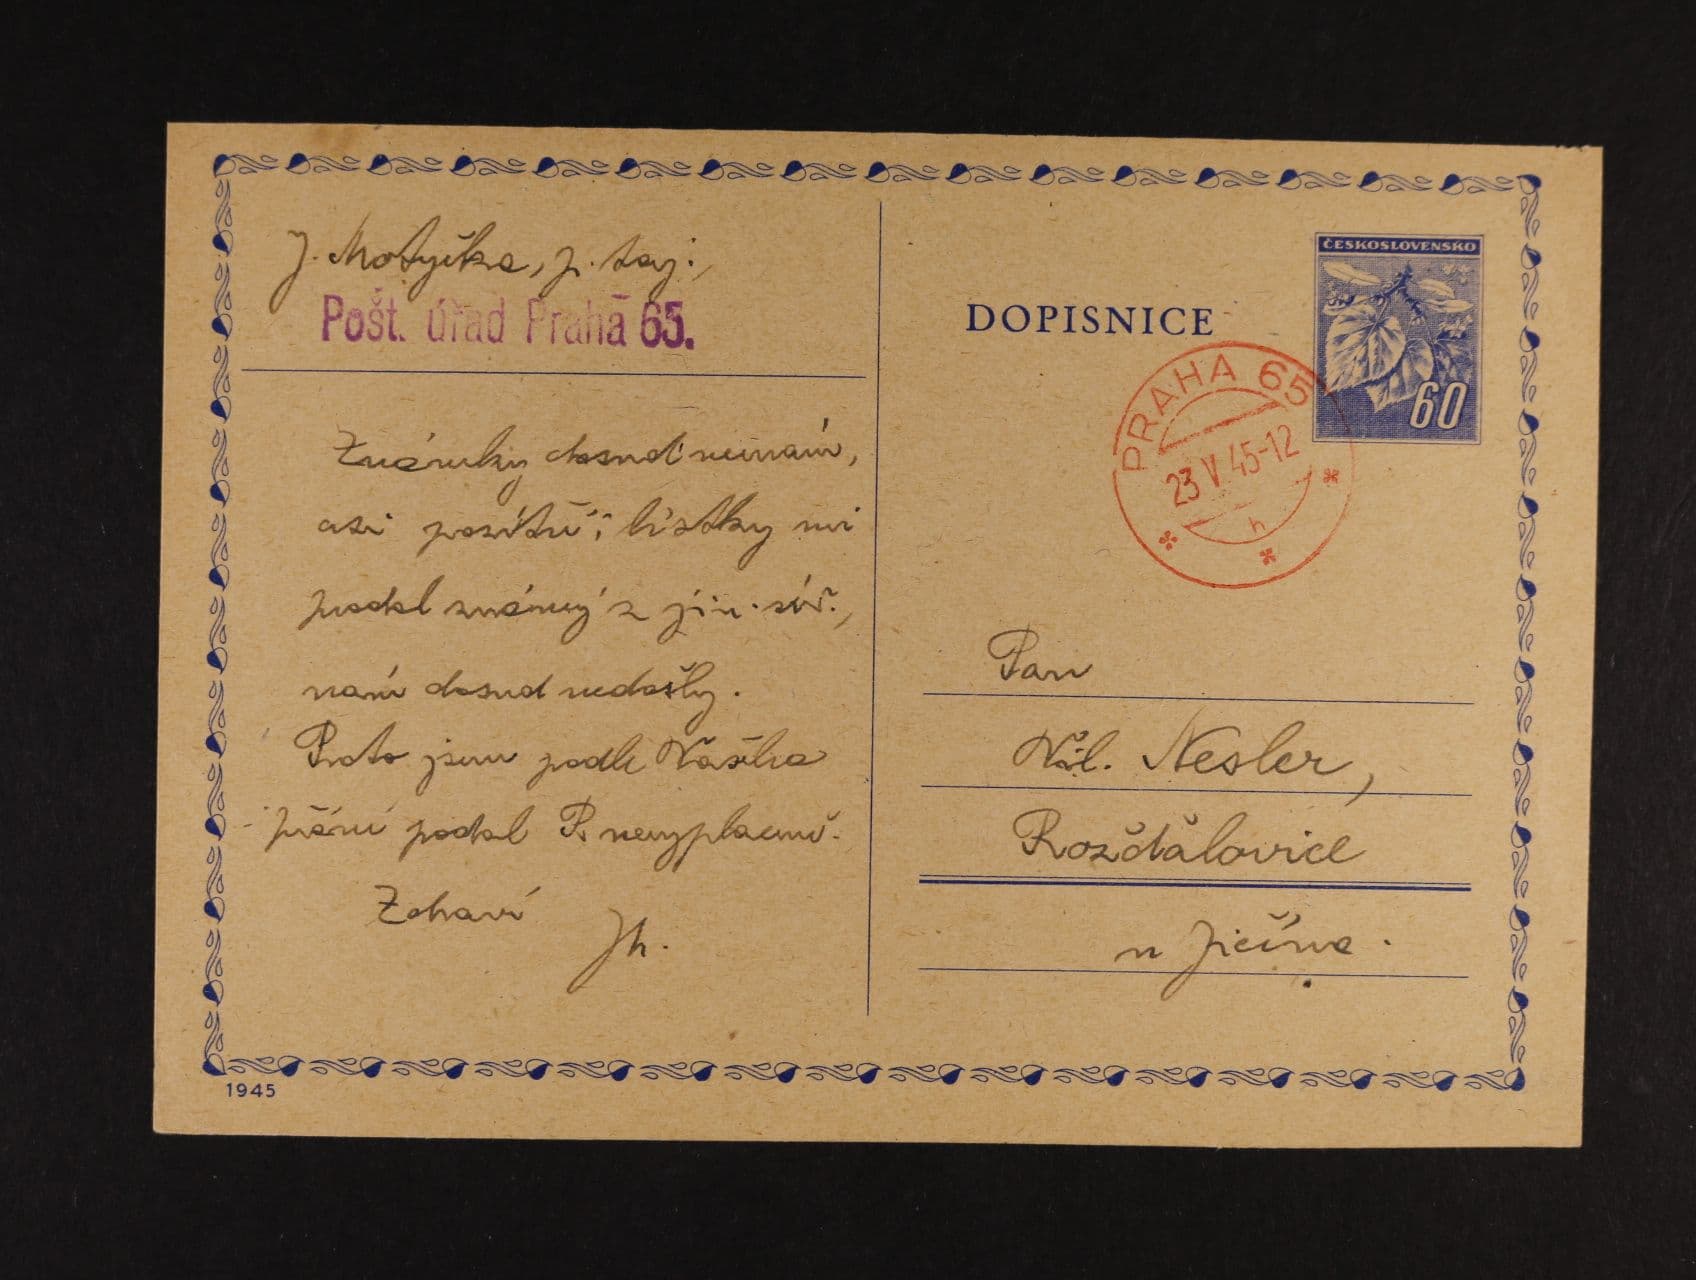 J. Motyčka, p. taj.,
Pošt. úřad Praha 65.
Známky dosud nemám,
asi pozítří; lístky mi
prodal známý z jin. úř.,
nám dosud nedošly.
Proto jsem podle Vašeho
přání podal R nevyplaceně.
Zdraví
Jh.
1945
DOPISNICE
ČESKOSLOVENSKO
60
PRAHA 65
23 V. 45-12
h
Pan
Vil. Nesler,
Rožďálovice
u Jičína.